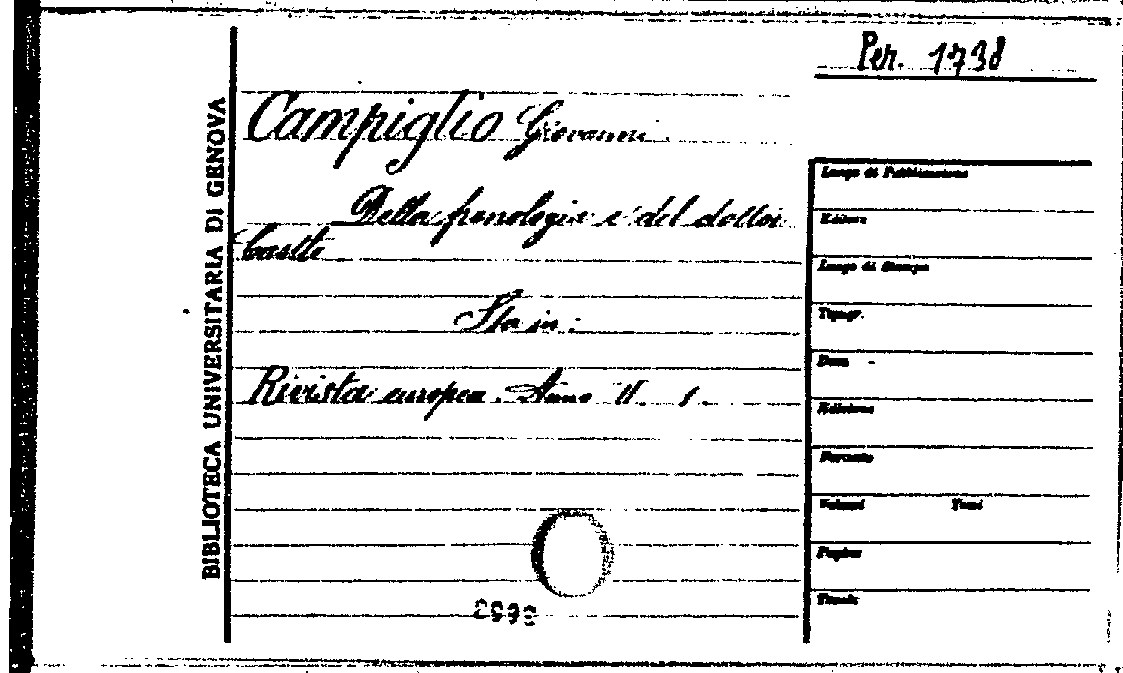 Per. 1738
BIBLIOTECA UNIVERSITARIA DI GENOVA
Campiglio Giovanni.
Della frenologia e del dottor
Castle
Sta in:
Rivista europea. Anno II. 1.
Luogo di Pubblicazione
Editore
Luogo di Stampa
Tipogr.
Data
Edizione
Formato
Volumi Tomi
Pagine